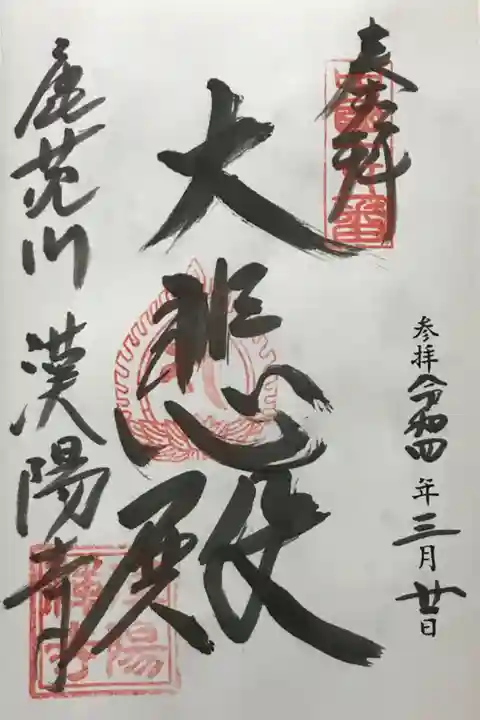 奉拝
参拝令和四年三月廿日
大悲殿
鹿苑山 漢陽寺
漢陽禅寺